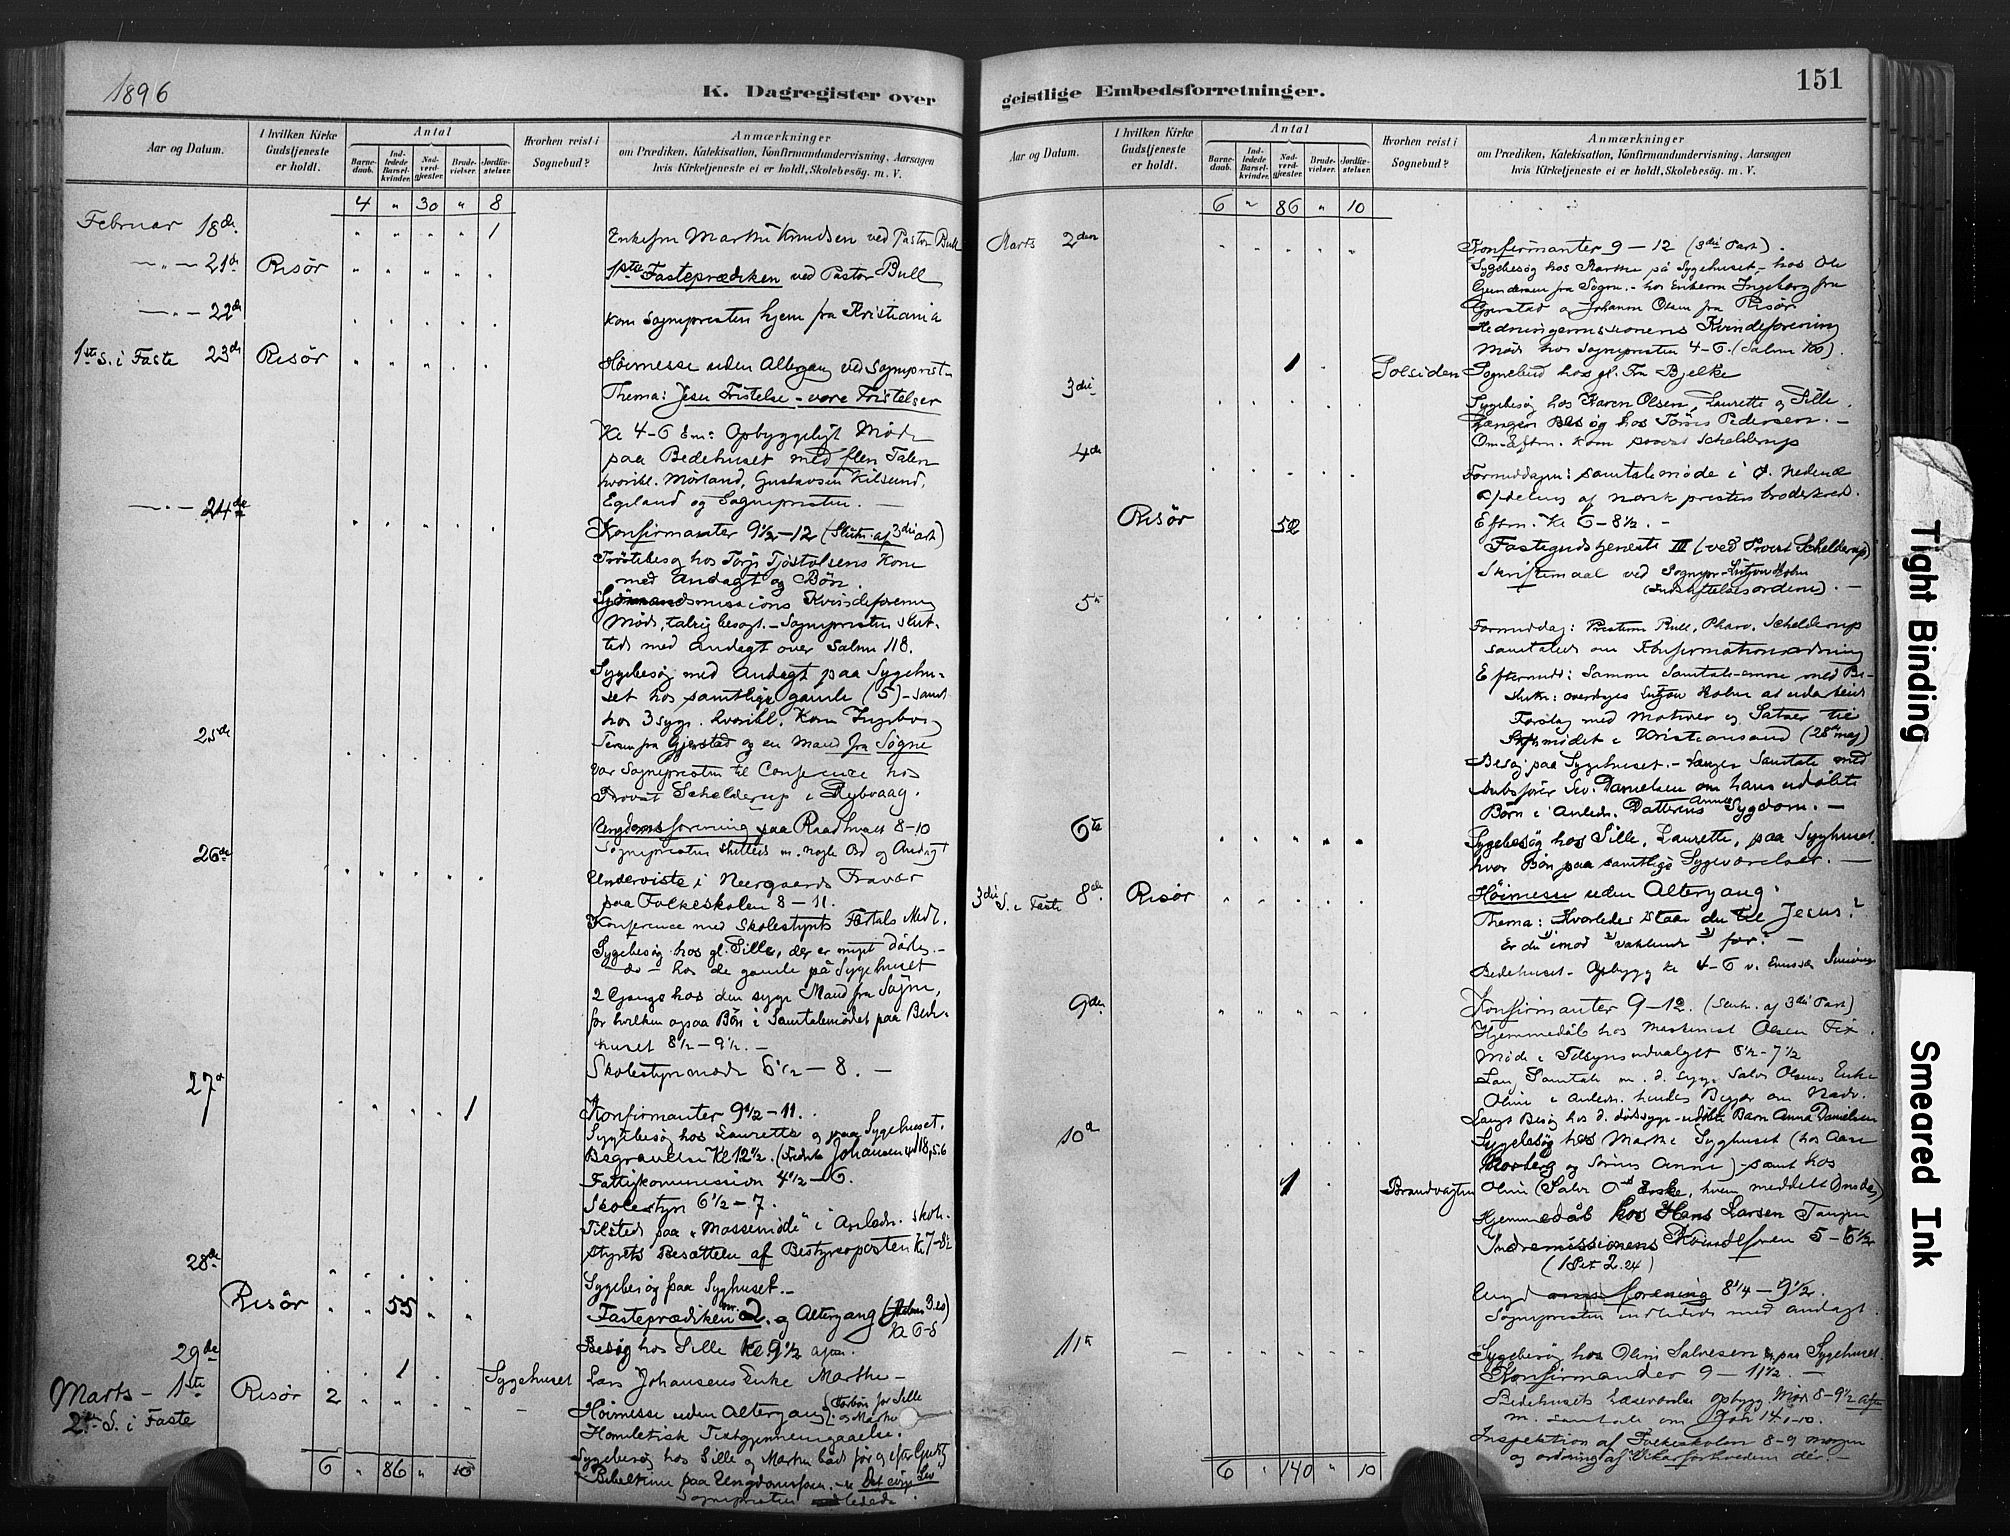 1896
K. Dagregister over
Aar og Datum.
I hvilken Kirke Gudstjeneste er holdt.
Antal
Barnedaab.
Indledede Barselkvinder.
Nadverdgjæster.
Brudevielser.
Jordfæstelser.
Hvorhen reist i Sognebud?
Anmærkninger
om Prædiken, Katekisation, Konfirmandundervisning, Aarsagen
hvis Kirketjeneste ei er holdt, Skolebesøg. m. V.
4 " 30 " 8
Februar 18de 1 Enkefru Marthe Knudsen ved Pastor Bull
— " — 21de Risør 1ste Fasteprædiken ved Pastor Bull
— " — 22de kom Sognepresten hjem fra Kristiania
1ste S. i Faste 23de Risør Høimesse uden Altergang ved Sognepresten
Thema: Jesu Fristelse – vore Fristelser
Kl 4–6 Em: Opbyggeligt Møde
paa Bedehuset med flere Talere
hvoribl. Mørland, Gustavsen Kilsund,
Egeland og Sognepresten. —
— " — 24de Konfirmanter 9½–12 (Slutn. af 3die art)
Trøstebesøg hos Tørjs Tjøstolsens Kone
med Andagt og Bøn.
Sjømandsmissions Kvindeforening
Møde, talrig besøgt. – Sognepresten slut-
tede med Andagt over Salme 118.
Sygebesøg med Andagt paa Sygehu-
set hos samtlige gamle (5) – samt
hos 3 syge. hvoribl. Kone Ingeborg
fra Gjerstad og en Mand fra Søgne
25de var Sognepresten til Conference hos
Provst Schelderup i Dybvaag.
Ungdomsforening paa Raadhuset 8–10
Sognepresten sluttede m. nogle Ord og Andagt
26de Underviste i Neergaards Fravær
paa Folkeskolen 8–11.
Konference med Skolestyrets Medl.
Sygebesøg hos gl. Sille, der er meget dårlig. –
– do – hos de gamle på Sygehuset
2 Gange hos den syge Mand fra Søgne,
for hvilken ogsaa Bøn i Samtalemødet paa Bede-
huset 8½–9½. –
Skolestyremøde 6½–8. —
27de 1 Konfirmanter 9½–11.
Sygebesøg hos Laurette og paa Sygehuset.
Begravelse Kl 12½.
Fattigkommission 4½–6.
Skolestyre 6½–7.
Tilsteds paa "Massemøde" i Anledn. Skole-
styrets Besættelse af Bestyrerposten Kl 7–8½
28de Sygebesøg paa Syghuset. –
Risør 55 Fasteprædiken 2. og Altergang
Kl 6–8
29de Besøg hos Sille Kl. 9½ aften.
1 Sygehuset Lars Johansens Enke Marthe –
Marts – 1ste Risør 2 Høimesse uden Altergang (Forbøn for Sille
og Marthe
2den S. i Faste Homiletisk Textgjennemgaaelse.
Sygebesøg hos Sille og Marthe både før og efter Gudst.
6 " 86 " 10 Bibeltime paa Ungdomsforen.
Sognepresten
geistlige Embedsforretninger.
151
Aar og Datum.
I hvilken Kirke Gudstjeneste er holdt.
Antal
Barnedaab.
Indledede Barselkvinder.
Nadverdgjæster.
Brudevielser.
Jordfæstelser.
Hvorhen reist i Sognebud?
Anmærkninger
om Prædiken, Katekisation, Konfirmandundervisning, Aarsagen
hvis Kirketjeneste ei er holdt, Skolebesøg. m. V.
6 " 86 " 10
Marts 2den Konfirmanter 9–12 (3die Part).
Sygebesøg hos Marthe på Sygehuset – hos Ole
Gundersen fra Søgne. – hos Enkerne Ingeborg fra
Gjerstad og Johanne Olsen fra Risør
Hedningemissionens Kvindeforening
Møde hos Sognepresten 4–6. (Salme 100).
1 Solsiden Sognebud hos gl. Fru Bjelke
3die Sygebesøg hos Karen Olsen, Laurette og Sille.
Længere Besøg hos Tørris Pedersen. –
Om Eftm. kom Provst Schelderup
4de Formiddagen: Samtalemøde i Ø. Nedenæs
Afdeling af norsk presters broderkred.
Risør 52 Eftm. Kl 6–8½. –
Fastegudstjeneste III (ved Provst Schelderup)
Skriftemaal ved Sognepr. Lützow Holm
(Indstiftelsesordene). –
5te Formiddag: Presterne Bull, Schelderup
samtalede om Konfirmationsordning
Eftermid: Samme Samtale-emne med Be-
slutn: overdroges Lützow Holm at udarbeide
Forslag med Motiver og Satser til
Stiftsmødet i Kristianssand (28de maj)
Besøg paa Sygehuset. – Længere Samtale med
Danielsen om hans udøbte
Børn i Anledn. Datterens Annas Sygdom. –
6te Sygebesøg hos Sille, Laurette, paa Syghuset.
hvor Bøn paa samtlige Sygeværelser. —
3die S. i Faste 8de Risør Høimesse uden Altergang.
Thema: Hvorledes staar du til Jesus?
Er du 1) imod 2) vaklende 3) for? –
Bedehuset. Opbygg Kl 4–6 v.
9de Konfirmanter 9–12. (Slutn. af 3die Part)
Hjemmedåb hos Maskinist Olsen Fix.
Møde i Tilsynsudvalget 6½–7½
Lang Samtale m. d. syge Salve Olsens Enke
Oline i Anledn. hendes Begjær om Nadv.
Langt Besøg hos d. dødssyge udøbte Barn Anna Danielsen
10de Sygebesøg hos Marthe Syghuset (hos Aase
og Sørines Anne) – samt hos
1 Brandvagten Oline (Salve O's Enke, hvem meddelt Ønsde)
Hjemmedåb hos Hans Larsen Tangen
Indremissionens Kvindeforen 5–6½
(1 Pet 2.24)
Ungd forening 8¼–9½.
Sognepresten indledede med andagt.
11te Sygebesøg hos Oline Salvesen & paa Sygehuset.
Konfirmander 9–11½. –
Bedehusets Læseværelse opbygg. Møde 8–9½ aften
m. samtale om Joh 14.1–10.
Inspektion af Folkeskolen 8–9 morgen
6 " 140 " 10 og ordning af Vikarforholdene dér. –
Tight Binding
Smeared Ink